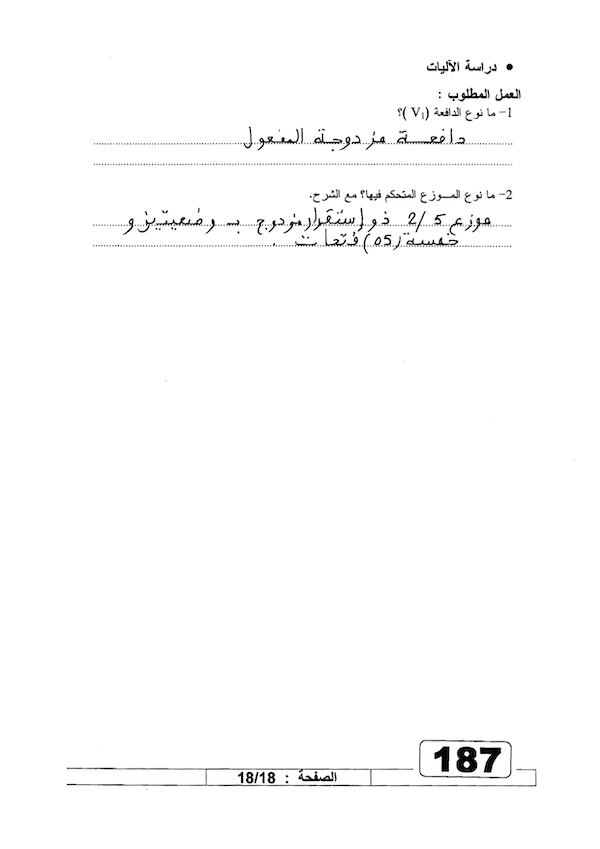 • دراسة الآليات
العمل المطلوب :
1- ما نوع الدافعة (V1)؟
دافعة مزدوجة المفعول
2- ما نوع المـوزع المتحكم فيها؟ مع الشرح.
موزع 2/5 ذو إستقرار مزدوج بـ وضعيتين و
خمسة (05) فتحات .
187
الصفحة : 18/18